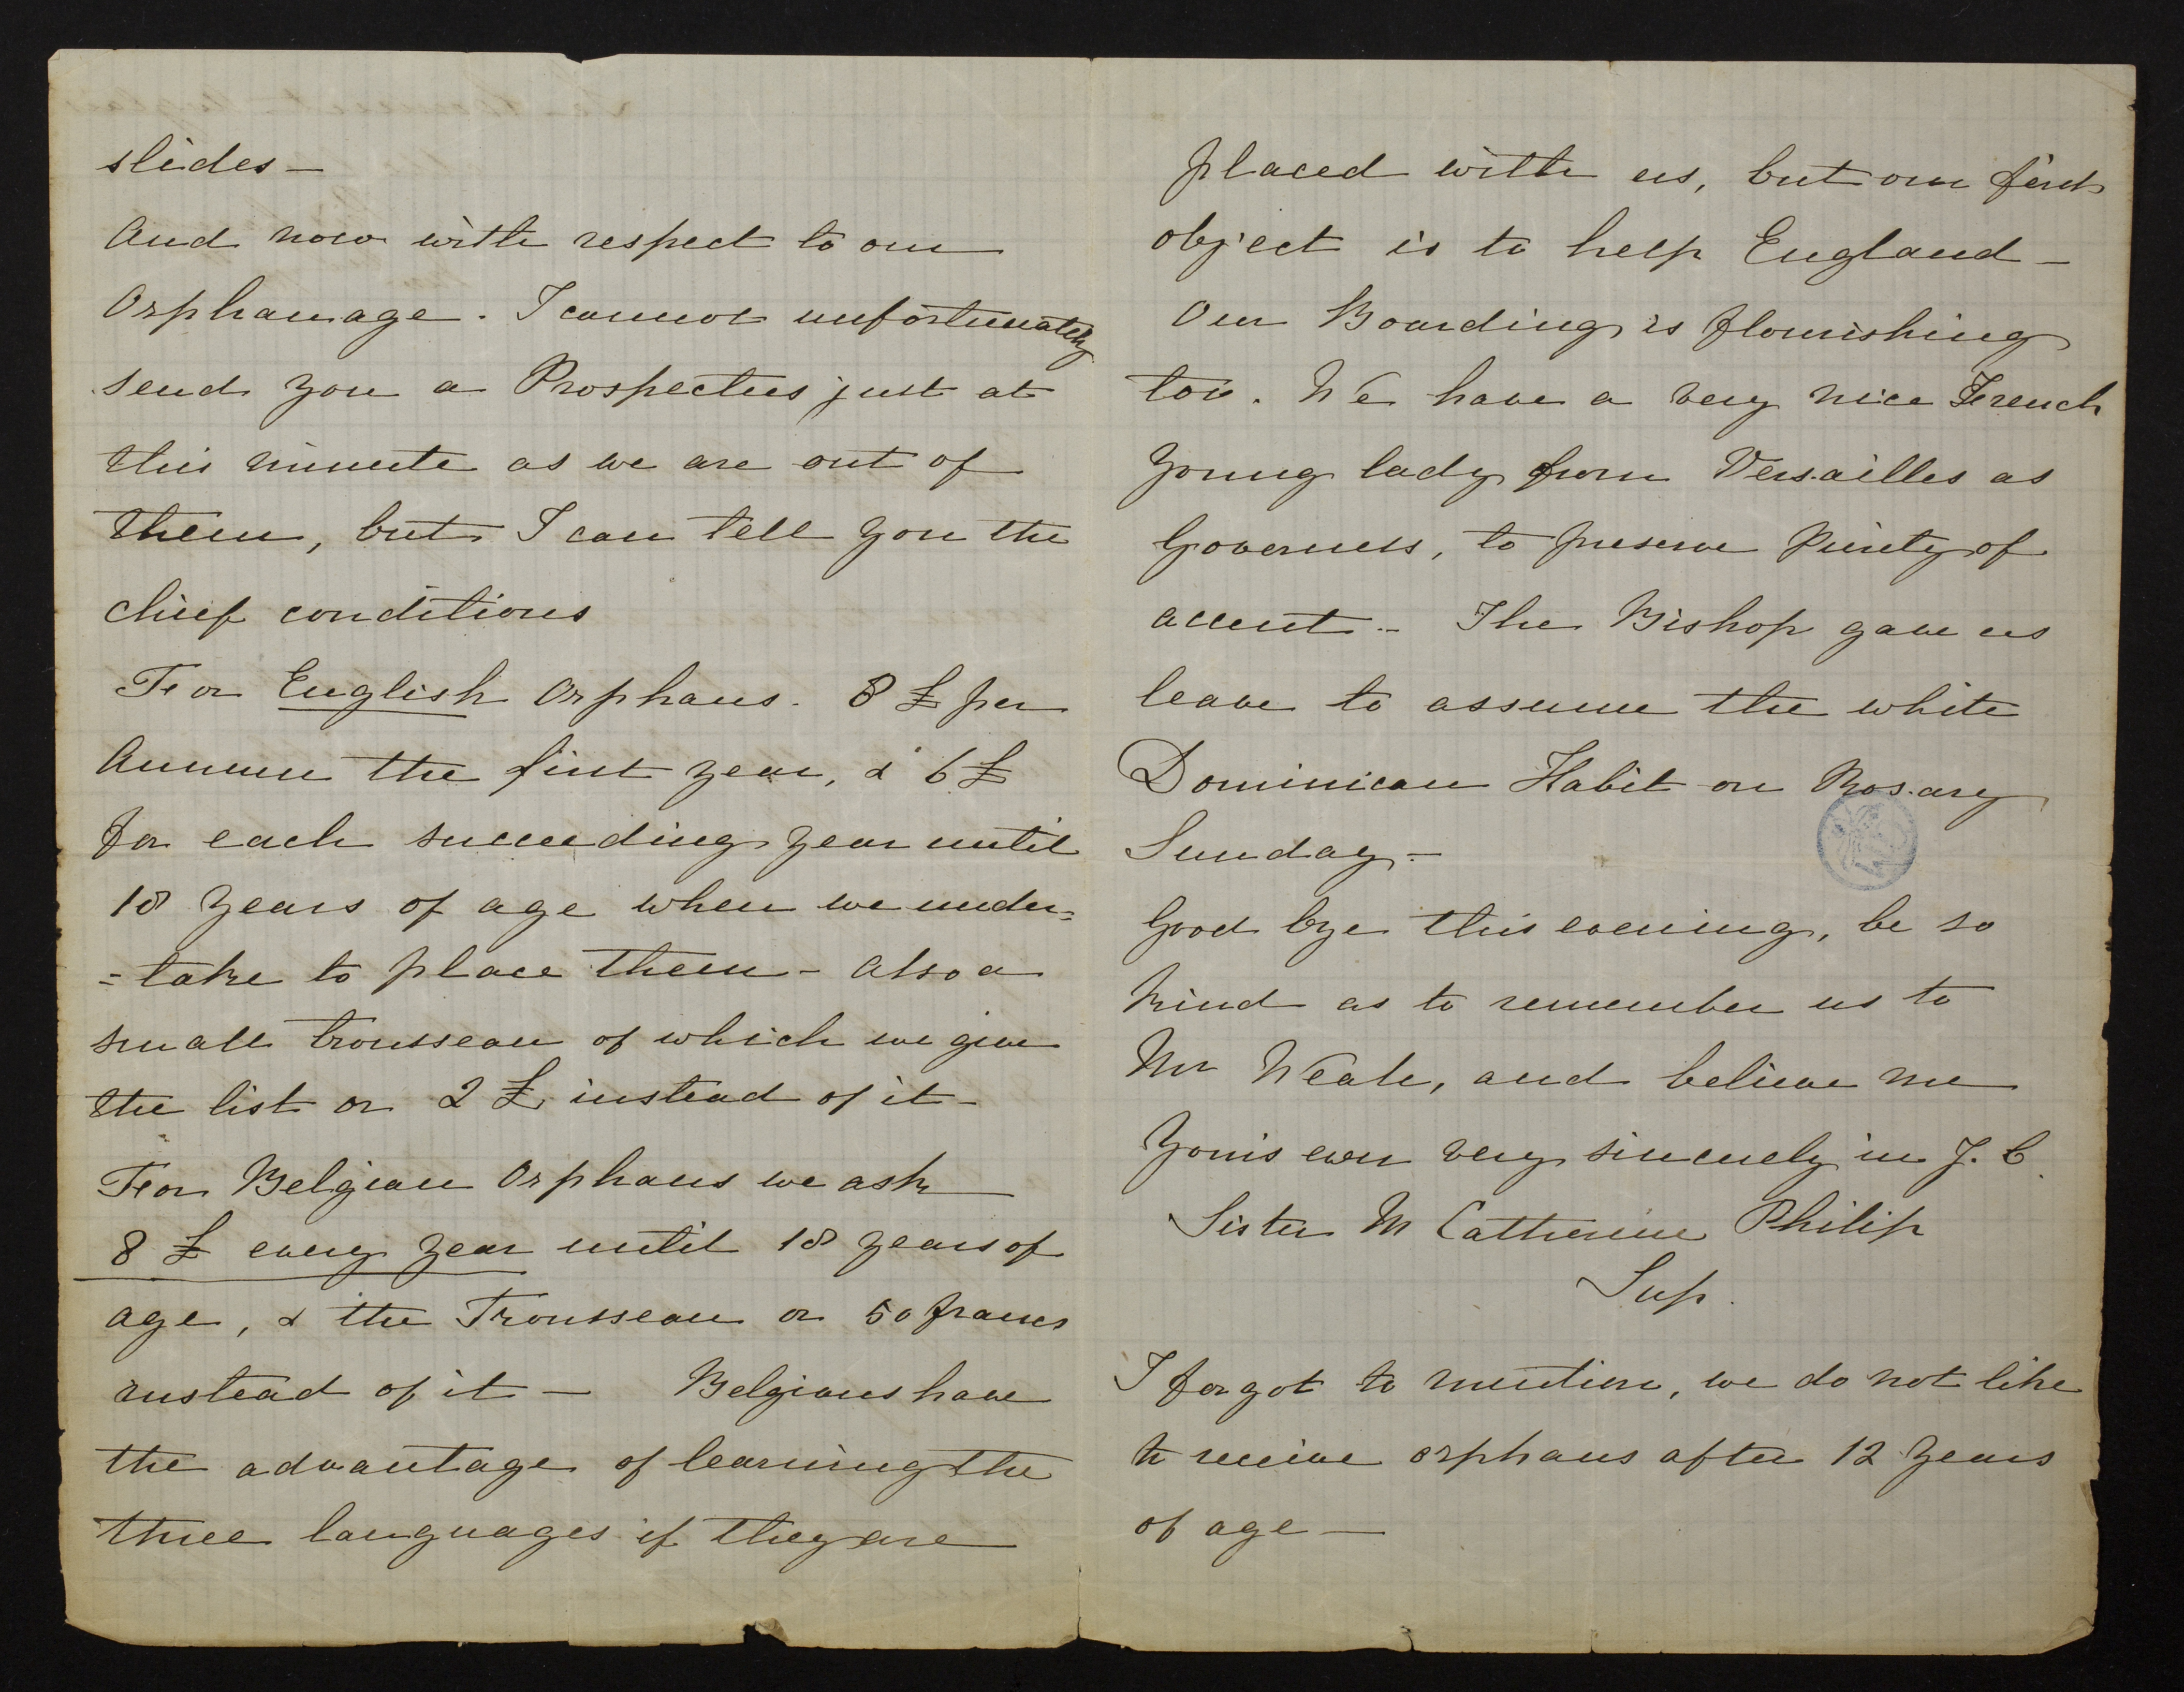 slides —
And now with respect to our
Orphanage. I cannot unfortunately
send you a Prospectus just at
this minute as we are out of
them, but I can tell you the
chief conditions
For English Orphans. 8 £ per
Annum the first year, & 6 £
for each succeeding year until
18 years of age when we under=
=take to place them - also a
small trousseau of which we give
the list or 2 £ instead of it -
For Belgian Orphans we ask
8 £ every year until 18 years of
age, & the Trousseau or 50 francs
instead of it — Belgians have
the advantage of learning the
three languages if they are
placed with us, but our first
object is to help England —
Our Boarding is flourishing
too. We have a very nice French
young lady from Versailles as
Governess, to preserve Purity of
accent - The Bishop gave us
leave to assume the white
Dominican Habit on Rosary
Sunday -
Good bye this evening, be so
kind as to remember us to
Mr Weale, and believe me
Yours ever very sincerely in J. C.
Sister M Catherine Philip
Sup.
I forgot to mention, we do not like
to receive orphans after 12 years
of age —